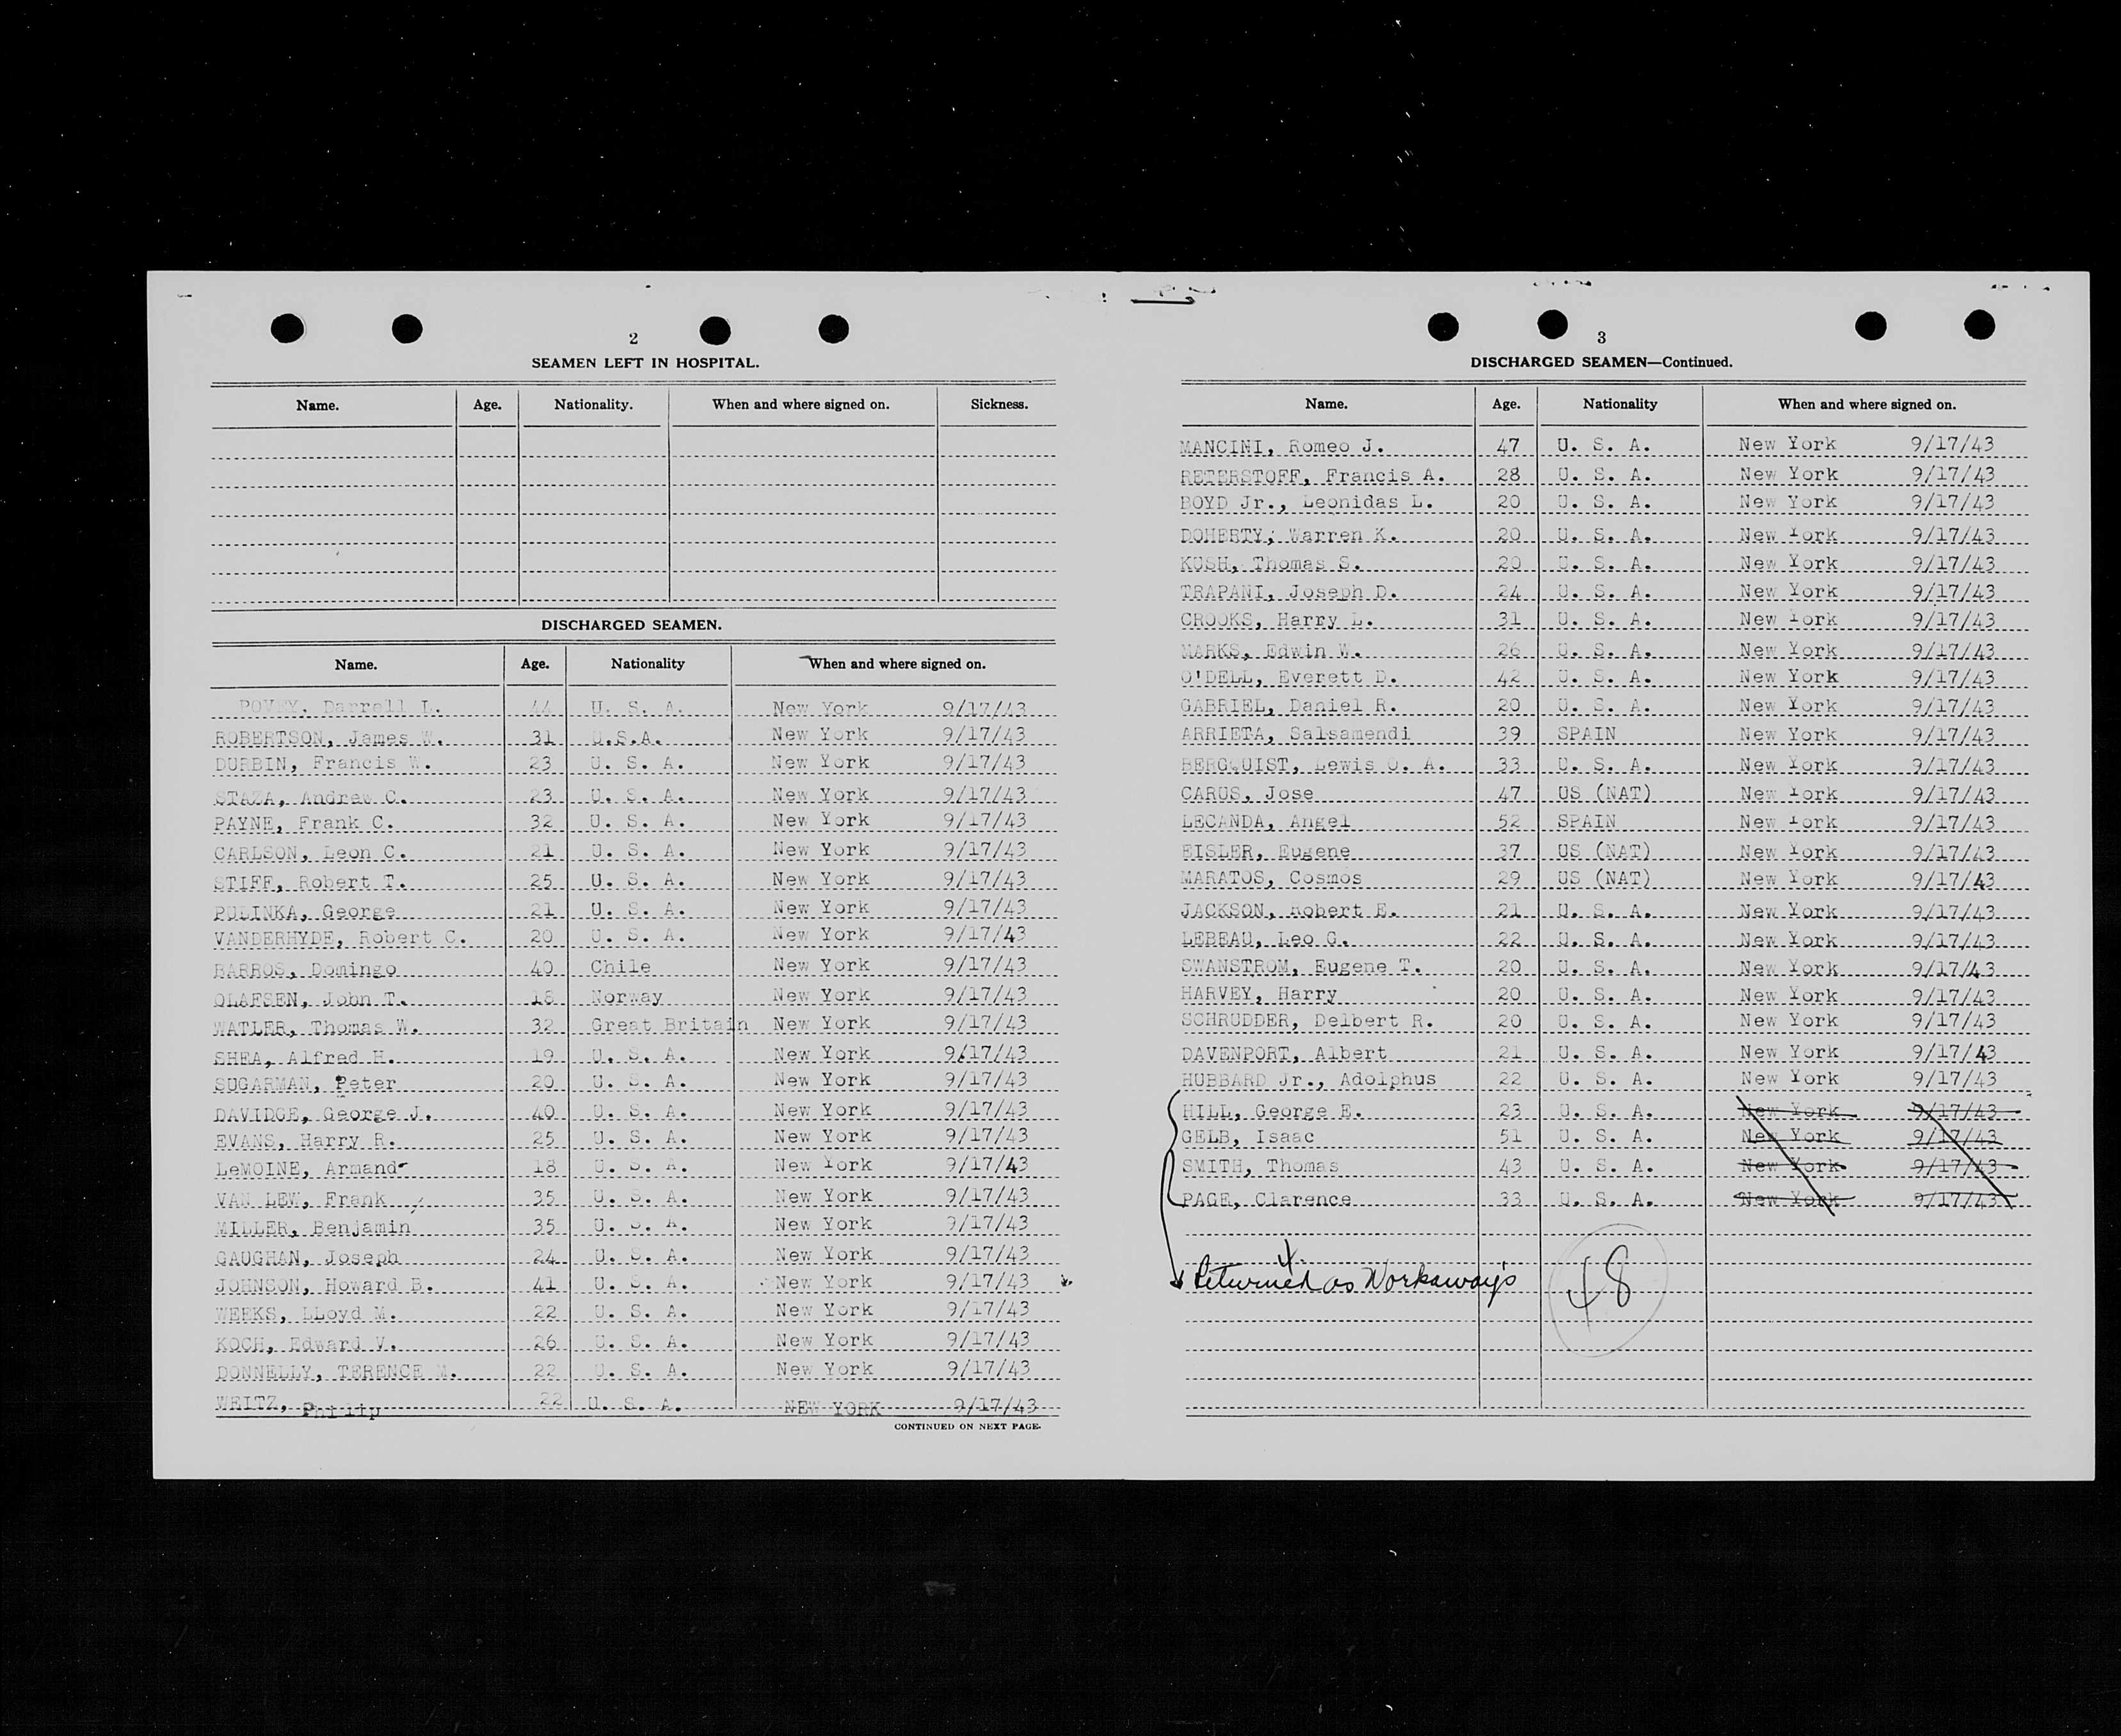 2
SEAMEN LEFT IN HOSPITAL.
Name. Age. Nationality. When and where signed on. Sickness.
DISCHARGED SEAMEN.
Name. Age. Nationality When and where signed on.
POVEY, Darrell L. 44 U. S. A. New York 9/17/43
ROBERTSON, James W. 31 U.S.A. New York 9/17/43
DURBIN, Francis W. 23 U. S. A. New York 9/17/43
STAZA, Andrew C. 23 U. S. A. New York 9/17/43
PAYNE, Frank C. 32 U. S. A. New York 9/17/43
CARLSON, Leon C. 21 U. S. A. New York 9/17/43
STIFF, Robert T. 25 U. S. A. New York 9/17/43
PULINKA, George 21 U. S. A. New York 9/17/43
VANDERHYDE, Robert C. 20 U. S. A. New York 9/17/43
BARROS, Domingo 40 Chile New York 9/17/43
OLAFSEN, John T. 18 Norway New York 9/17/43
WATLER, Thomas W. 32 Great Britain New York 9/17/43
SHEA, Alfred H. 19 U. S. A. New York 9/17/43
SUGARMAN, Peter 20 U. S. A. New York 9/17/43
DAVIDGE, George J. 40 U. S. A. New York 9/17/43
EVANS, Harry R. 25 U. S. A. New York 9/17/43
LeMOINE, Armand 18 U. S. A. New York 9/17/43
VAN LEW, Frank 35 U. S. A. New York 9/17/43
MILLER, Benjamin 35 U. S. A. New York 9/17/43
GAUGHAN, Joseph 24 U. S. A. New York 9/17/43
JOHNSON, Howard B. 41 U. S. A. New York 9/17/43
WEEKS, LLoyd M. 22 U. S. A. New York 9/17/43
KOCH, Edward V. 26 U. S. A. New York 9/17/43
DONNELLY, TERENCE M. 22 U. S. A. New York 9/17/43
WEITZ, Philip 22 U. S. A. NEW YORK 9/17/43
CONTINUED ON NEXT PAGE.
3
DISCHARGED SEAMEN—Continued.
Name. Age. Nationality When and where signed on.
MANCINI, Romeo J. 47 U. S. A. New York 9/17/43
RETERSTOFF, Francis A. 28 U. S. A. New York 9/17/43
BOYD Jr., Leonidas L. 20 U. S. A. New York 9/17/43
DOHERTY, Warren K. 20 U. S. A. New York 9/17/43
KUSH, Thomas S. 20 U. S. A. New York 9/17/43
TRAPANI, Joseph D. 24 U. S. A. New York 9/17/43
CROOKS, Harry L. 31 U. S. A. New York 9/17/43
MARKS, Edwin W. 26 U. S. A. New York 9/17/43
O'DELL, Everett D. 42 U. S. A. New York 9/17/43
GABRIEL, Daniel R. 20 U. S. A. New York 9/17/43
ARRIETA, Salsamendi 39 SPAIN New York 9/17/43
BERGQUIST, Lewis O. A. 33 U. S. A. New York 9/17/43
CARUS, Jose 47 US (NAT) New York 9/17/43
LECANDA, Angel 52 SPAIN New York 9/17/43
EISLER, Eugene 37 US (NAT) New York 9/17/43
MARATOS, Cosmos 29 US (NAT) New York 9/17/43
JACKSON, Robert E. 21 U. S. A. New York 9/17/43
LEBEAU, Leo G. 22 U. S. A. New York 9/17/43
SWANSTROM, Eugene T. 20 U. S. A. New York 9/17/43
HARVEY, Harry 20 U. S. A. New York 9/17/43
SCHRUDDER, Delbert R. 20 U. S. A. New York 9/17/43
DAVENPORT, Albert 21 U. S. A. New York 9/17/43
HUBBARD Jr., Adolphus 22 U. S. A. New York 9/17/43
HILL, George E. 23 U. S. A. New York 9/17/43
GELB, Isaac 51 U. S. A. New York 9/17/43
SMITH, Thomas 43 U. S. A. New York 9/17/43
PAGE, Clarence 33 U. S. A. New York 9/17/43
4
Returned as Workaways
48